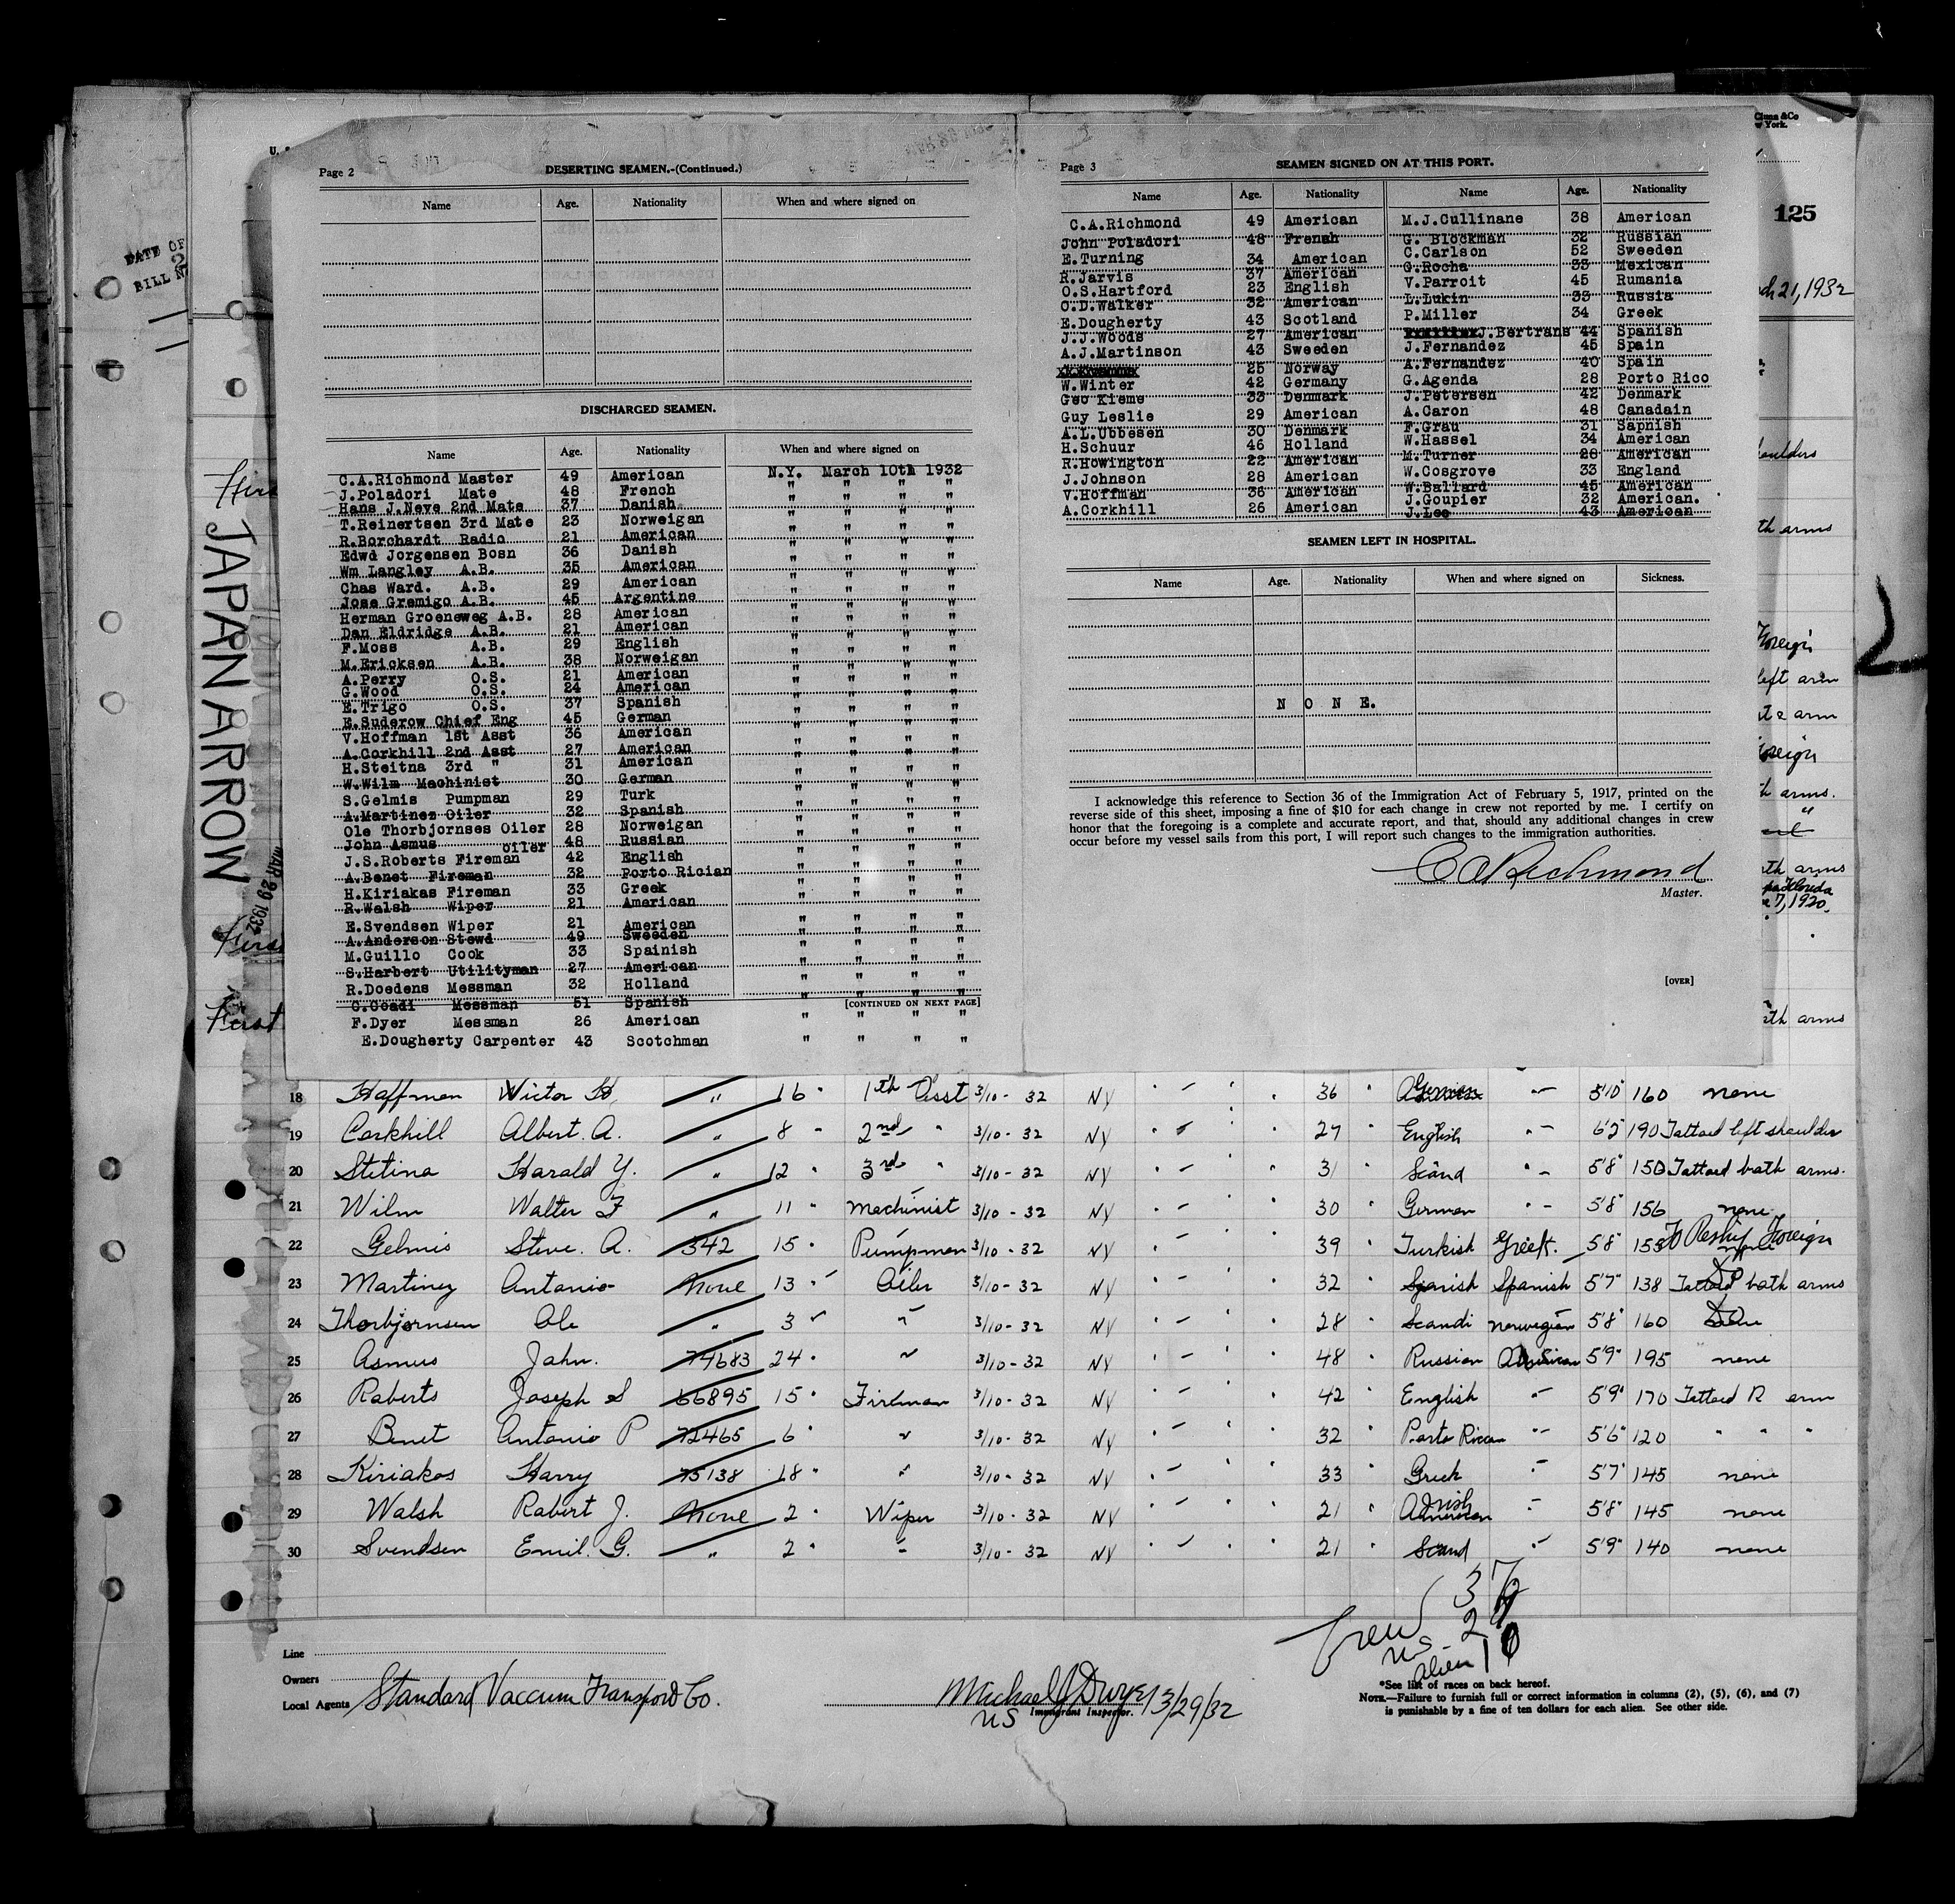 Page 2 DESERTING SEAMEN.-(Continued.)
Name Age. Nationality When and where signed on
DISCHARGED SEAMEN.
Name Age. Nationality When and where signed on
C.A.Richmond Master 49 American N.Y. March 10th 1932
J.Poladori Mate 48 French " " " "
Hans J.Neve 2nd Mate 37 Danish " " " "
T.Reinertsen 3rd Mate 23 Norweigan " " " "
R.Borchardt Radio 21 American " " " "
Edwd Jorgensen Bosn 36 Danish " " " "
Wm Langley A.B. 35 American " " " "
Chas Ward. A.B. 29 American " " " "
Jose Gremigo A.B. 45 Argentine " " " "
Herman Groeneweg A.B. 28 American " " " "
Dan Eldridge A.B. 21 American " " " "
F.Moss A.B. 29 English " " " "
M.Ericksen A.B. 38 Norweigan " " " "
A.Perry O.S. 21 American " " " "
G.Wood O.S. 24 American " " " "
E.Trigo O.S. 37 Spanish " " " "
E.Suderow Chief Eng 45 German " " " "
V.Hoffman 1st Asst 36 American " " " "
A.Corkhill 2nd Asst 27 American " " " "
H.Steitna 3rd " 31 American " " " "
W.Wilm Machinist 30 German " " " "
S.Gelmis Pumpman 29 Turk " " " "
A.Martinez Oiler 32 Spanish " " " "
Ole Thorbjornses Oiler 28 Norweigan " " " "
John Asmus oiler 48 Russian " " " "
J.S.Roberts Fireman 42 English " " " "
A.Benet Fireman 32 Porto Rician " " " "
H.Kiriakas Fireman 33 Greek " " " "
R.Walsh Wiper 21 American " " " "
E.Svendsen Wiper 21 American " " " "
A.Anderson Stewd 49 Sweeden " " " "
M.Guillo Cook 33 Spainish " " " "
S.Harbert Utilityman 27 American " " " "
R.Doedens Messman 32 Holland " " " "
C.Coadi Messman 51 Spanish " " " "
[CONTINUED ON NEXT PAGE]
F.Dyer Messman 26 American " " " "
E.Dougherty Carpenter 43 Scotchman " " " "
Page 3 SEAMEN SIGNED ON AT THIS PORT.
Name Age. Nationality Name Age. Nationality
C.A.Richmond 49 American M.J.Cullinane 38 American
John Poladori 48 Frenah G. Blockman 32 Russian
E.Turning 34 American C.Carlson 52 Sweden
R.Jarvis 37 American G.Rocha 33 Mexican
O.S.Hartford 23 English V.Parroit 45 Rumania
C.D.Walker 32 American L.Lukin 33 Russia
E.Dougherty 43 Scotland P.Miller 34 Greek
J.J.Woods 27 American J.Bertrans 44 Spanish
A.J.Martinson 43 Sweden J.Fernandez 45 Spain
25 Norway A.Fernandez 40 Spain
W.Winter 42 Germany G.Agenda 28 Porto Rico
Geo Kieme 33 Denmark J.Petersen 42 Denmark
Guy Leslie 29 American A.Caron 48 Canadain
A.L.Ubbesen 30 Denmark F.Grau 31 Sapnish
H.Schuur 46 Holland W.Hassel 34 American
R.Howington 22 American M.Turner 28 American
J.Johnson 28 American W.Cosgrove 33 England
V.Hoffman 36 American W.Ballard 45 American
A.Corkhill 26 American J.Goupier 32 American.
J.Lee 43 American
SEAMEN LEFT IN HOSPITAL.
Name Age. Nationality When and where signed on Sickness.
N O N E.
I acknowledge this reference to Section 36 of the Immigration Act of February 5, 1917, printed on the
reverse side of this sheet, imposing a fine of $10 for each change in crew not reported by me. I certify on
honor that the foregoing is a complete and accurate report, and that, should any additional changes in crew
occur before my vessel sails from this port, I will report such changes to the immigration authorities.
C A Richmond
Master.
[OVER]
JAPAN ARROW
MAR 29 1932
First
DATE OF
BILL N
125
ch 21, 1932
oulders
th arms
Foreign
left arm
te arm
oreign
h arms.
th arms
pa Florida
e 7, 1920.
th arms
18 Hoffman Victor H. " 16 " 1th Asst 3/10-32 NY 36 " German " 5'10" 160 none
19 Corkhill Albert. A. " 8 " 2nd " 3/10-32 NY 27 " English " 6'2" 190 Tattoed left shoulder
20 Stitina Harald Y. " 12 " 3rd " 3/10-32 NY 31 " Scand " 5'8" 150 Tattoed both arms.
21 Wilm Walter F " 11 " Machinist 3/10-32 NY 30 " German " 5'8" 156 none
22 Gelmis Steve. A. 342 15 " Pumpman 3/10-32 NY 39 " Turkish Greek. 5'8" 155 none To Reship Foreign
23 Martinez Antonio None 13 " Oiler 3/10-32 NY 32 " Spanish Spanish 5'7" 138 Tattoed both arms
24 Thorbjornsen Ole " 3 " " 3/10-32 NY 28 " Scandi Norwegian 5'8" 160
25 Asmus John. 74683 24 " " 3/10-32 NY 48 " Russian 5'9" 195 none
26 Roberts Joseph S 66895 15 " Fireman 3/10-32 NY 42 " English " 5'9" 170 Tattoed R arm
27 Benet Antonio P 72465 6 " " 3/10-32 NY 32 " Porto Rican " 5'6" 120 " " "
28 Kiriakos Harry 75138 18 " " 3/10-32 NY 33 " Greek " 5'7" 145 none
29 Walsh Robert J. None 2 " Wiper 3/10-32 NY 21 " Irish American " 5'8" 145 none
30 Svendsen Emil. G. " 2 " " 3/10-32 NY 21 " Scand " 5'9" 140 none
Crew 37
US - 2
Alien 10
Line
Owners
Local Agents Standard Vaccum Transport Co.
Michael J Dwyer 3/29/32
US Immigrant Inspector.
*See list of races on back hereof.
NOTE.—Failure to furnish full or correct information in columns (2), (5), (6), and (7)
is punishable by a fine of ten dollars for each alien. See other side.